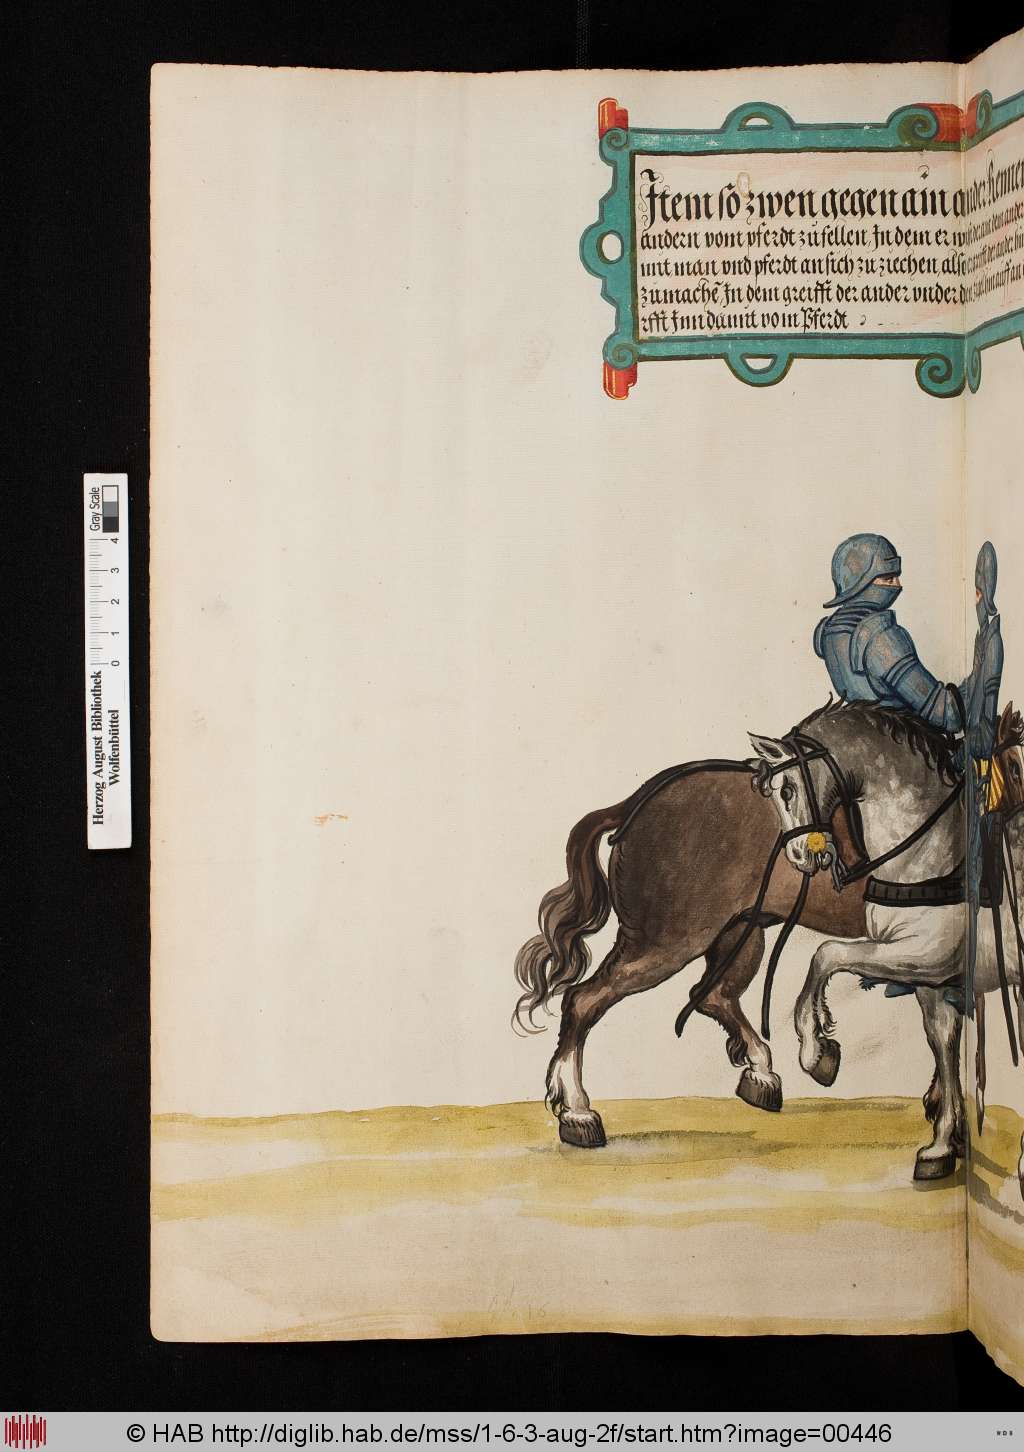 Item so zwen gegen ain ander Rennen
andern vom pferdt zu fellen, In dem er
mit man vnd pferdt an sich zu ziechen, also ergreifft der ander
zumachẽ In dem greifft der ander vnder hinauff an
rfft Inn damit vom Pferdt
Herzog August Bibliothek
Wolfenbüttel
0 1 2 3 4
Gray Scale
© HAB http://diglib.hab.de/mss/1-6-3-aug-2f/start.htm?image=00446
WDB